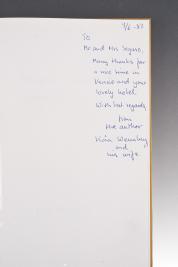 4/6 -87
To
Mr and Mrs
Many thanks for
a nice time in
Venice and your
lovely hotel.
With best regards
from
the author
and
his wife